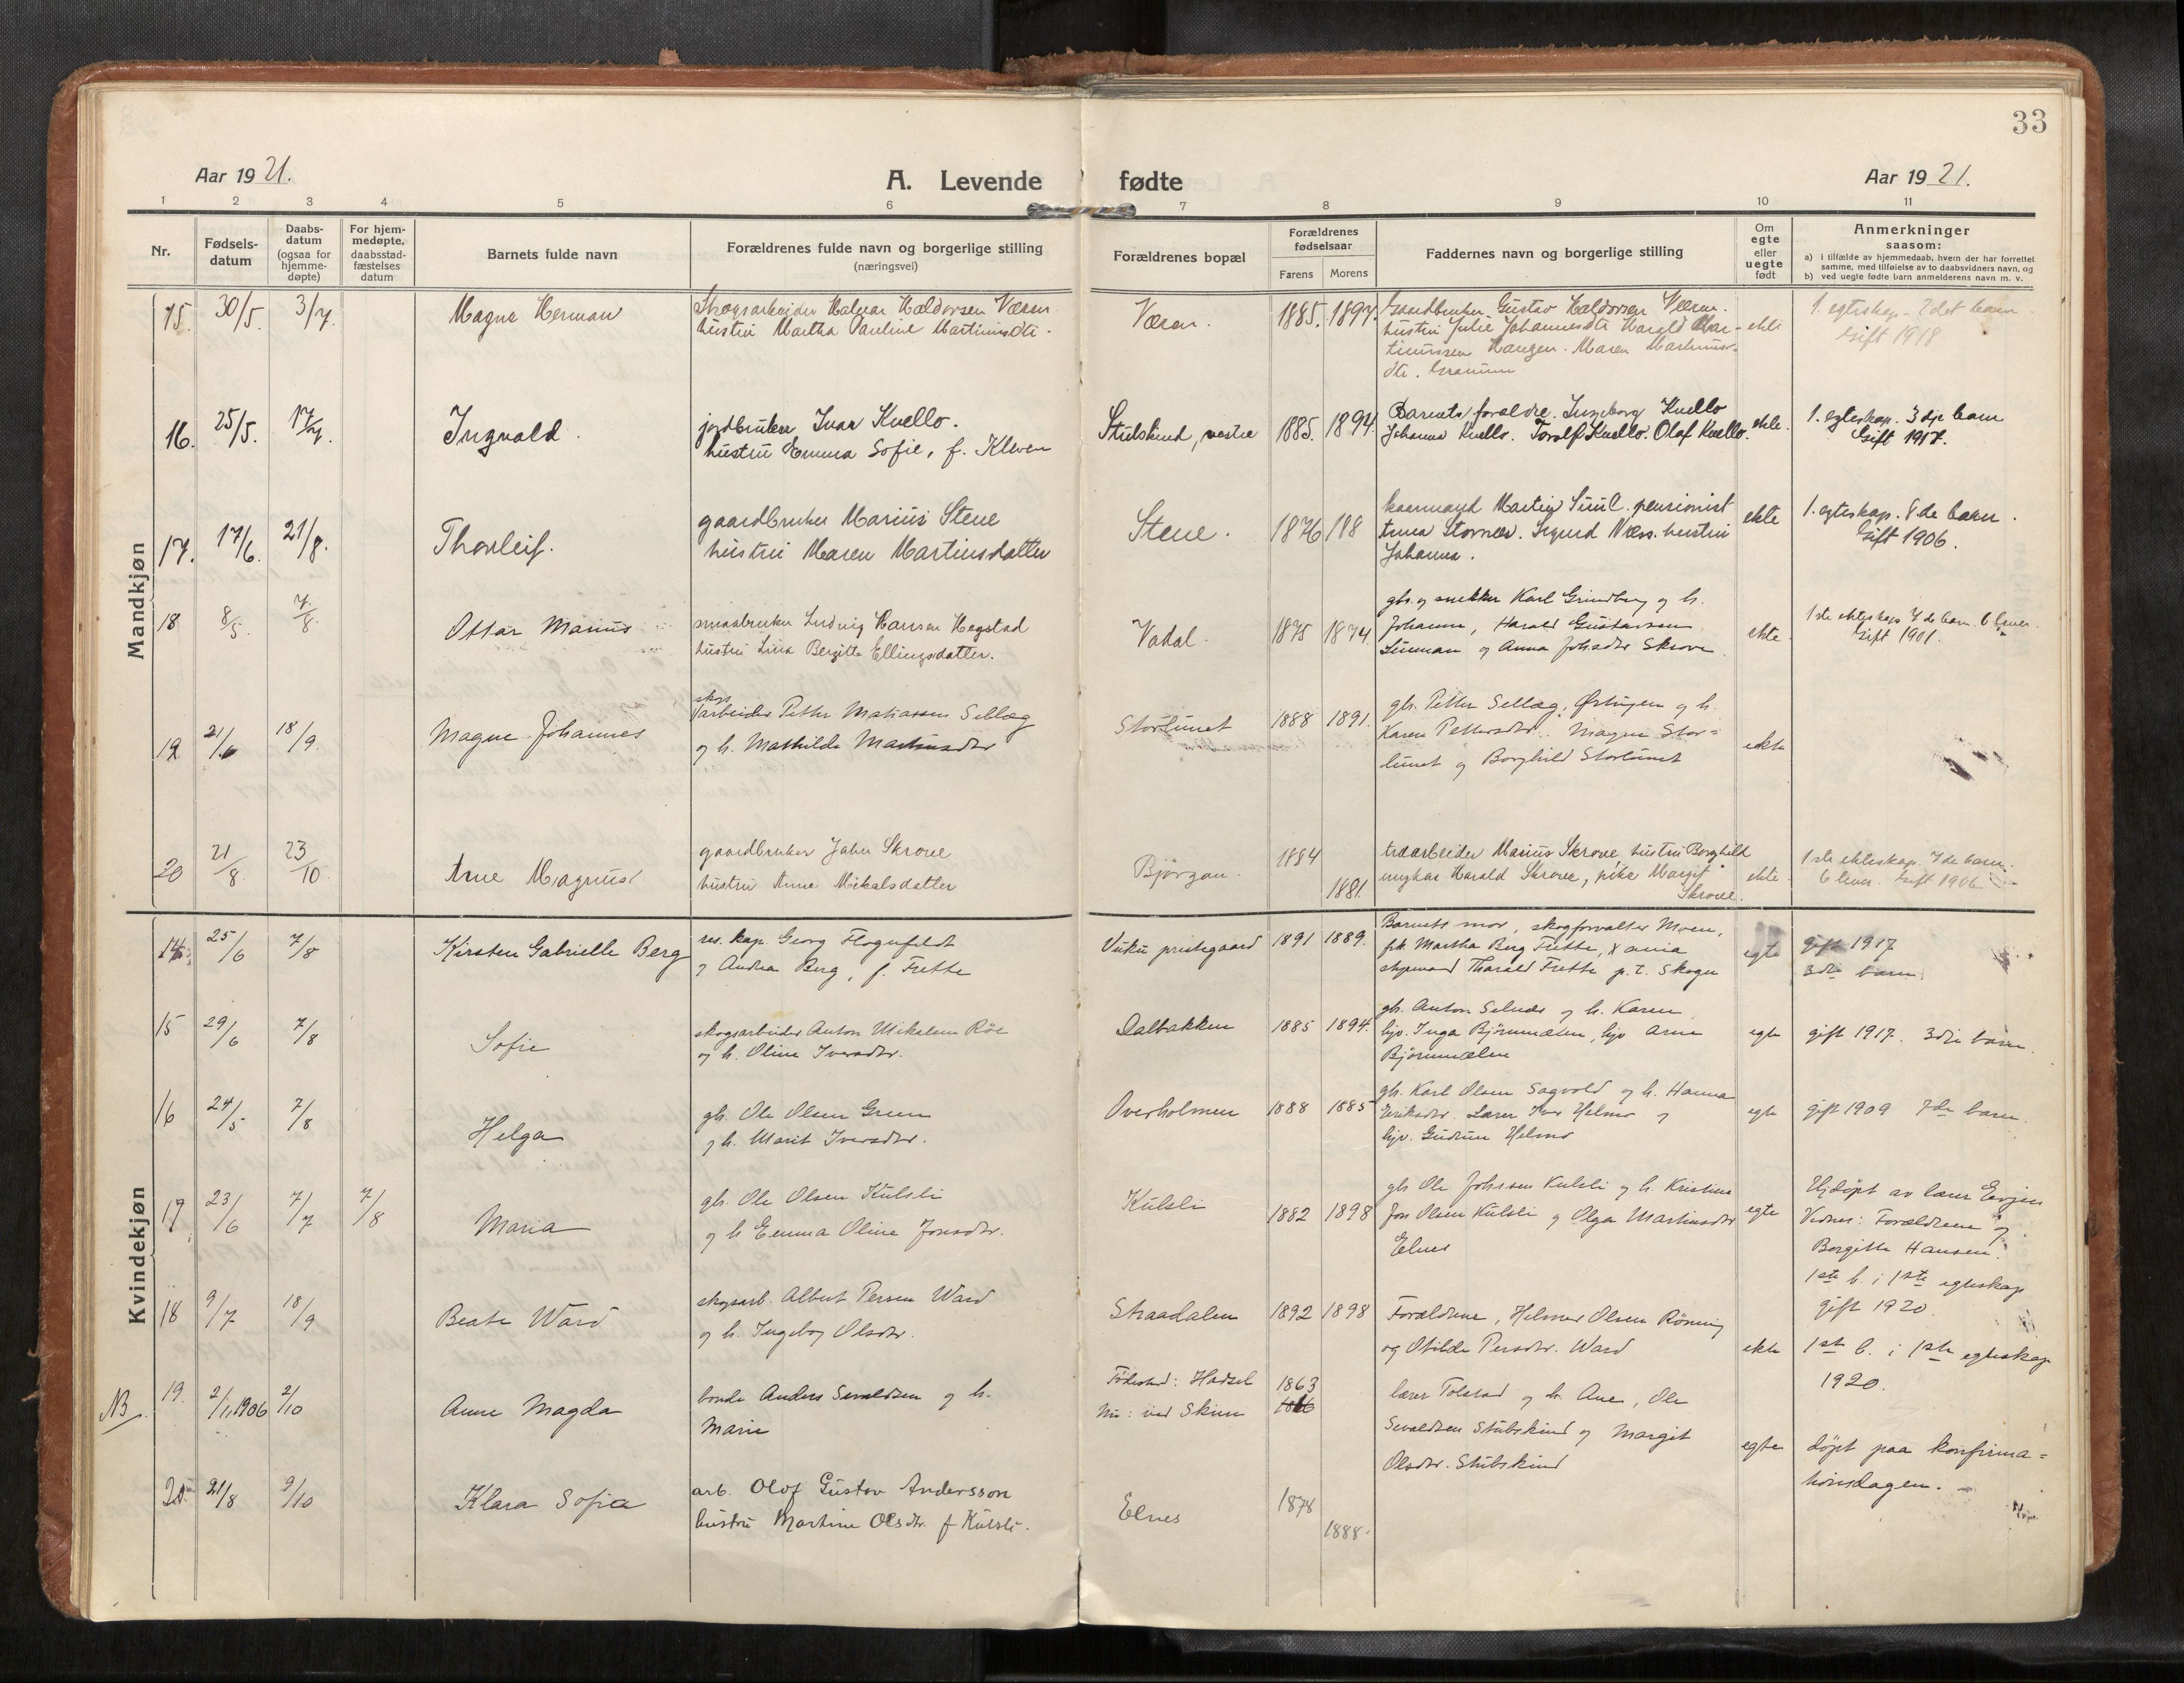 33
Aar 1921.
A. Levende fødte
Aar 1921.
1 2 3 4 5 6 7 8 9 10 11
Nr.
Fødsels-
datum
Daabs-
datum
(ogsaa for
hjemme-
døpte)
For hjem-
medøpte,
daabsstad-
fæstelses
datum
Barnets fulde navn
Forældrenes fulde navn og borgerlige stilling
(næringsvei)
Forældrenes bopæl
Forældrenes
fødselsaar
Farens Morens
Faddernes navn og borgerlige stilling
Om
egte
eller
uegte
født
Anmerkninger
saasom:
a) i tilfælde av hjemmedaab, hvem der har forrettet
samme, med tilføielse av to daabsvidners navn, og
b) ved uegte fødte barn anmelderens navn m. v.
Mandkjøn
15. 30/5. 3/7. Magne Herman
Skogsarbeider Halvar Haldorsen Væren
hustru Martha Pauline Martinusdtr.
Væren. 1885. 1897.
Gaardbruker Gustav Haldorsen Væren.
hustru Julie Johannesdtr Harald Mar-
tinussen Haugen. Maren Martinus-
dtr.
ekte
1. egteskap - 2det barn.
Gift 1918
16. 25/5. 17/7. Ingvald.
jordbruker Ivar Kvello.
hustru Emma Sofie, f. Kleven
Stubskind, vestre 1885. 1894.
Barnets foraldre. Ingeborg Kvello
Johanna Kvello. Toralf Kvello. Olaf Kvello.
ekte.
1. egteskap. 3dje barn
Gift 1917.
17. 17/6. 21/8. Thorleif.
gaardbruker Marius Stene
hustru Maren Martinsdatter
Stene. 1876 188
kaarmand Martin Suul. pensionist
Anna Stornæs. Sigurd Næss. hustru
Johanna.
ekte
1. egteskap. 8de barn.
Gift 1906.
18 8/5. 7/8 Ottar Marius
smaabruker Ludvig Hansen Hegstad
hustru Lina Bergitte Ellingsdatter.
Vadal. 1875 1874.
gbr. og snekker Karl Grindberg og h.
Johanna, Harald Gustavsen
Sinnman og Anna Johsdtr Skrove
ekte.
1ste ekteskap 7de barn. 6 lever.
Gift 1901.
19 21/6 18/9. Magne Johannes
skogs
arbeider Petter Matiassen Sellæg
og h. Mathilde Martinusdtr
Storlunet 1888 1891.
gbr. Petter Sellæg, Østugen og h.
Karen Pettersdtr. Magne Stor=
lunet og Borghild Storlunet
ekte
20 21/8. 23/10. Arne Magnus
gaardbruker John Skrove
hustru Anne Mikalsdatter
Björgan. 1884
1881.
træarbeider Marius Skrove, hustru Borghild
ungkar Harald Skrove, pike Margit
Skrove.
ekte.
1ste ekteskap. 7de barn.
6 lever. Gift 1906
Kvindekjøn
14 25/6 7/8 Kirsten Gabrielle Berg
res. kap. Georg Flognfeldt
og Andrea Berg, f. Frette
Vuku prestegaard 1891 1889.
Barnets mor, skogforvalter Moen,
frk Martha Berg Frette, Xania
styrmand Tharald Frette p.t. Skogn
egte
gift 1917
3die barn
15 29/6 7/8 Sofie
skogsarbeider Anton Mikelsen Röe
og h. Oline Iversdtr.
Dalbakken 1885 1894.
gbr. Anton Selnes og h. Karen
hjv. Inga Björnmælen, hjv Arne
Björnmælen
egte
gift 1917. 3die barn.
16 24/5 7/8 Helga
gbr. Ole Olsen Green
og h. Marit Iversdtr.
Overholmen 1888 1885
gbr. Karl Olsen Sagvold og h. Hanna
Eriksdtr. Lærer Iver Helmo og
hjv. Gudrun Helmo
egte
gift 1909 7de barn.
17 23/6 7/7 7/8 Maria
gbr. Ole Olsen Kulsli
og h Emma Oline Jonsdtr.
Kulsli 1882 1898
gbr Ole Johnsen Kulsli og h. Kristine
Jon Olsen Kulsli og Olga Martinsdtr
Elnes
egte
Hjdöpt av lærer Evjen
Vidner: Forældrene og
Bergitte Hansen.
1ste b. i 1ste egteskap
gift 1920.
18 9/7 18/9 Beate Ward
skogsarb. Albert Persen Ward
og h. Ingeborg Olsdtr.
Straadalen 1892 1898
Forældrene, Helmer Olsen Röning
og Otilde Persdtr. Ward
ekte
1ste b. i 1ste egteskap
1920.
NB. 19. 2/11 1906 2/10 Anne Magda
bonde Anders Sevaldsen og h.
Marie
Födested: Hadsel
Nu: ved Skien
1863
lærer Tolstad og h. Ane, Ole
Sevaldsen Stubskind og Margit
Olsdtr. Stubskind
egte
döpt paa konfirma=
tionsdagen.
20 21/8 9/10 Klara Sofia
arb. Olof Gustav Andersson
hustru Martine Olsdtr. f Kulsli.
Elnes 1878
1888.